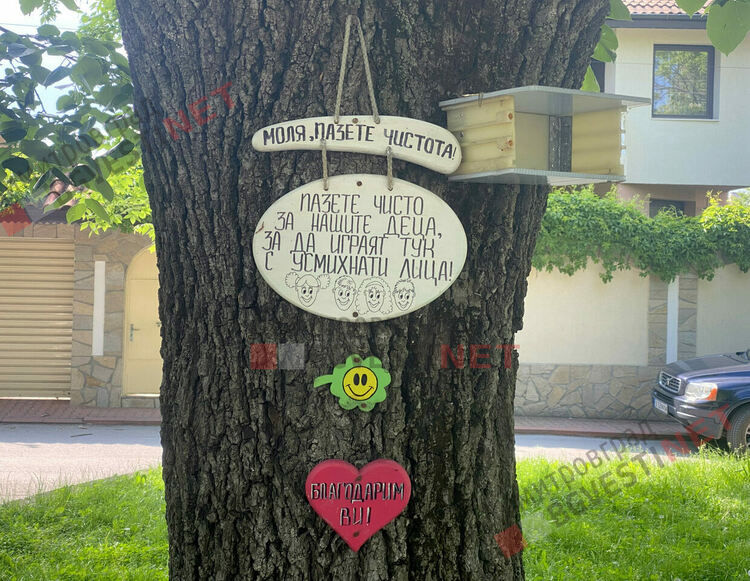 МОЛЯ, ПАЗЕТЕ ЧИСТОТА!
ПАЗЕТЕ ЧИСТО
ЗА НАШИТЕ ДЕЦА,
ЗА ДА ИГРАЯТ ТУК
С УСМИХНАТИ ЛИЦА!
БЛАГОДАРИМ
ВИ!
NET
NET